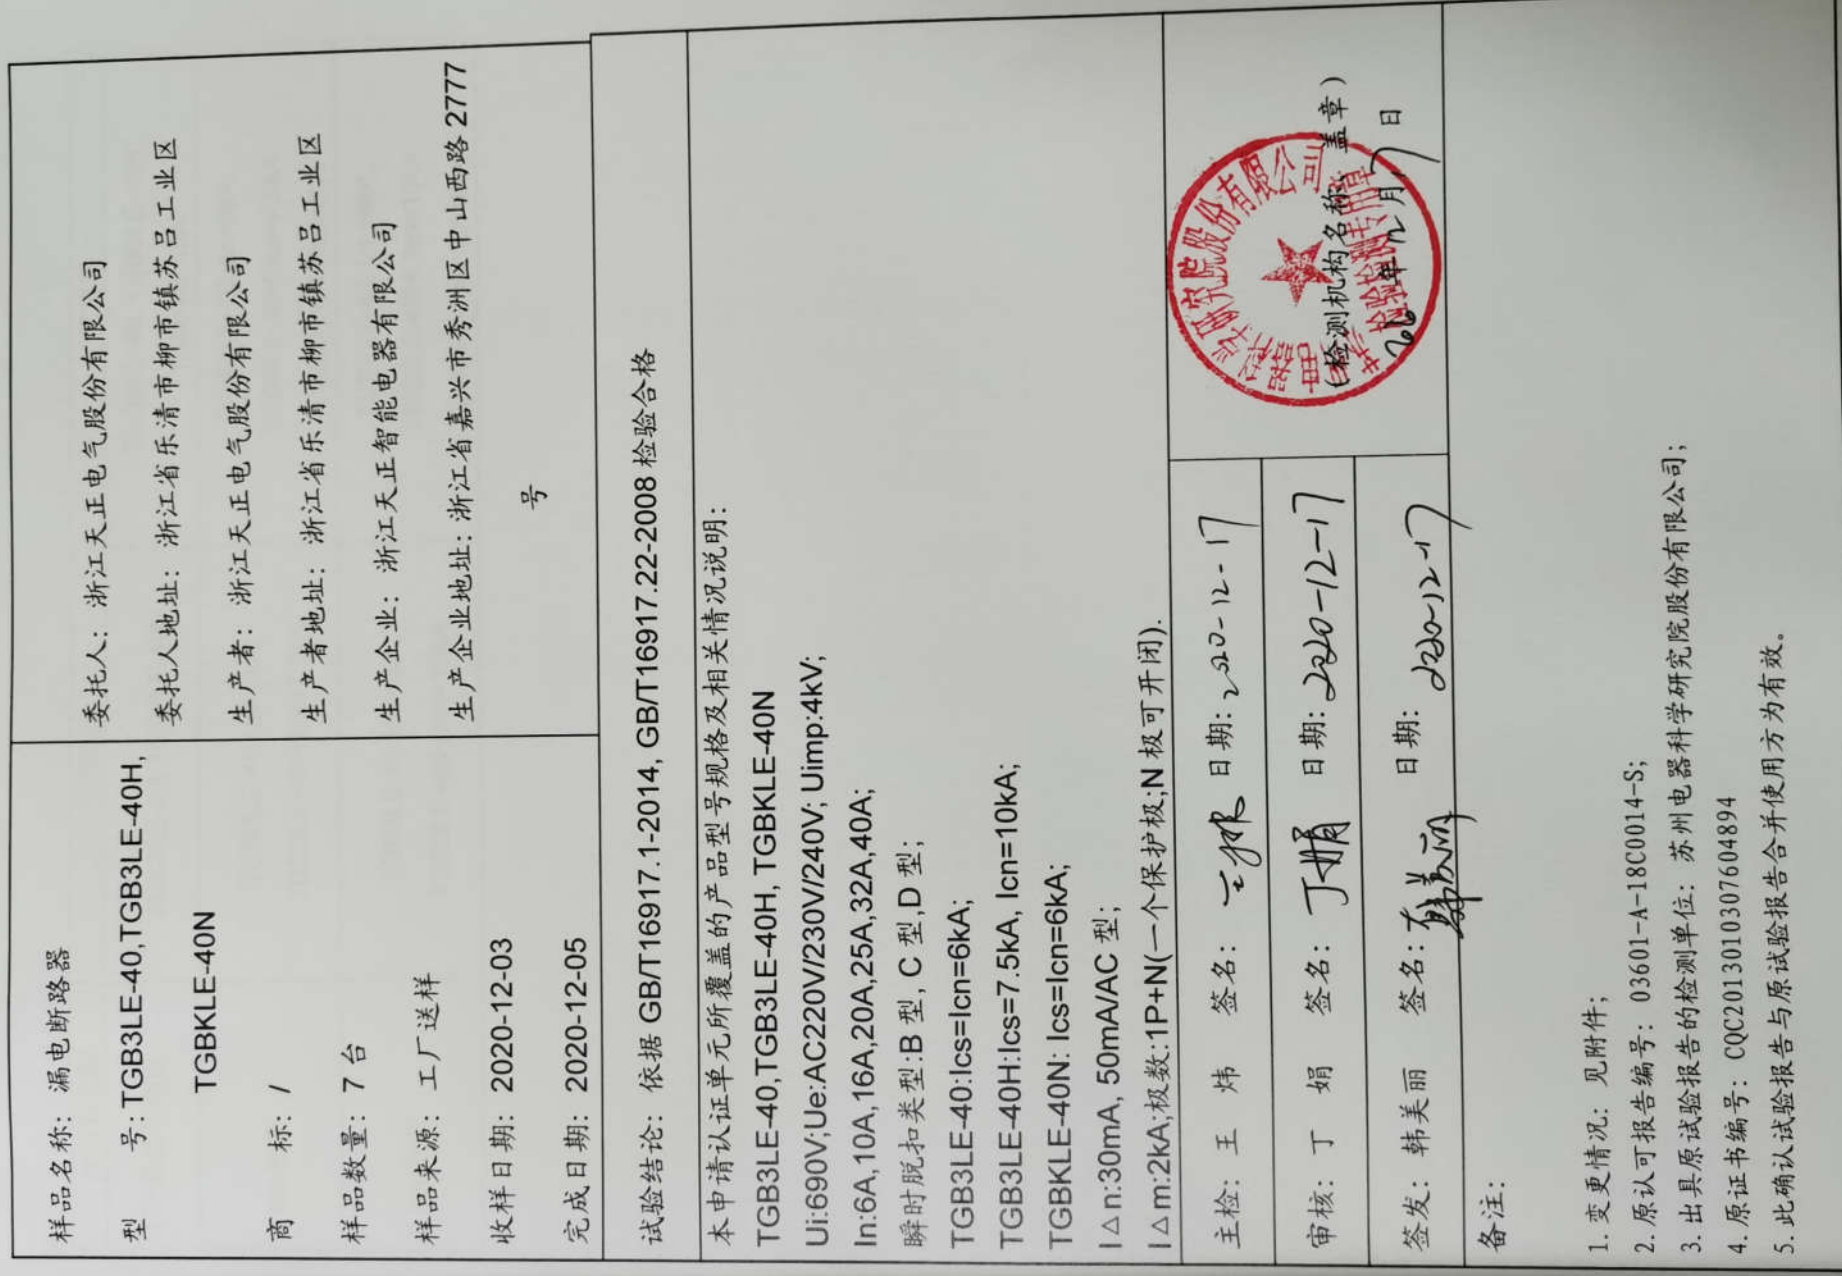 样品名称：漏电断路器
型 号：TGB3LE-40,TGB3LE-40H,
TGBKLE-40N
商 标：/
样品数量：7 台
样品来源：工厂送样
收样日期：2020-12-03
完成日期：2020-12-05
委托人：浙江天正电气股份有限公司
委托人地址：浙江省乐清市柳市镇苏吕工业区
生产者：浙江天正电气股份有限公司
生产者地址：浙江省乐清市柳市镇苏吕工业区
生产企业：浙江天正智能电器有限公司
生产企业地址：浙江省嘉兴市秀洲区中山西路 2777
号
试验结论：依据 GB/T16917.1-2014, GB/T16917.22-2008 检验合格
本申请认证单元所覆盖的产品型号规格及相关情况说明：
TGB3LE-40,TGB3LE-40H, TGBKLE-40N
Ui:690V;Ue:AC220V/230V/240V; Uimp:4kV;
In:6A,10A,16A,20A,25A,32A,40A;
瞬时脱扣类型:B 型, C 型,D 型;
TGB3LE-40:Ics=Icn=6kA;
TGB3LE-40H:Ics=7.5kA, Icn=10kA;
TGBKLE-40N: Ics=Icn=6kA;
I△n:30mA, 50mA/AC 型;
I△m:2kA;极数:1P+N(一个保护极;N 极可开闭).
主检：王 炜 签名： 日期：2020-12-17
审核：丁 娟 签名：丁娟 日期：2020-12-17
签发：韩美丽 签名：韩美丽 日期：2020-12-17
研究院股份有限公司
检验检测专用章
(检测机构名称 盖章)
年12月17日
备注：
1. 变更情况：见附件；
2. 原认可报告编号：03601-A-18C0014-S；
3. 出具原试验报告的检测单位：苏州电器科学研究院股份有限公司；
4. 原证书编号：CQC2013010307604894
5. 此确认试验报告与原试验报告合并使用方为有效。